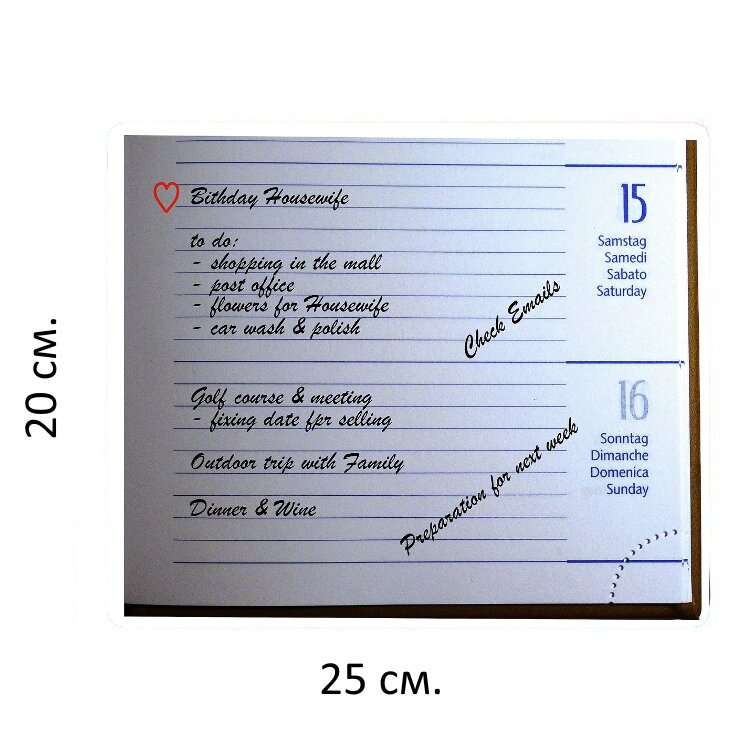 Bithday Housewife
to do:
- shopping in the mall
- post office
- flowers for Housewife
- car wash & polish
Check Emails
15
Samstag
Samedi
Sabato
Saturday
Golf course & meeting
- fixing date fpr selling
Outdoor trip with Family
Dinner & Wine
Preparation for next week
16
Sonntag
Dimanche
Domenica
Sunday
20 см.
25 см.